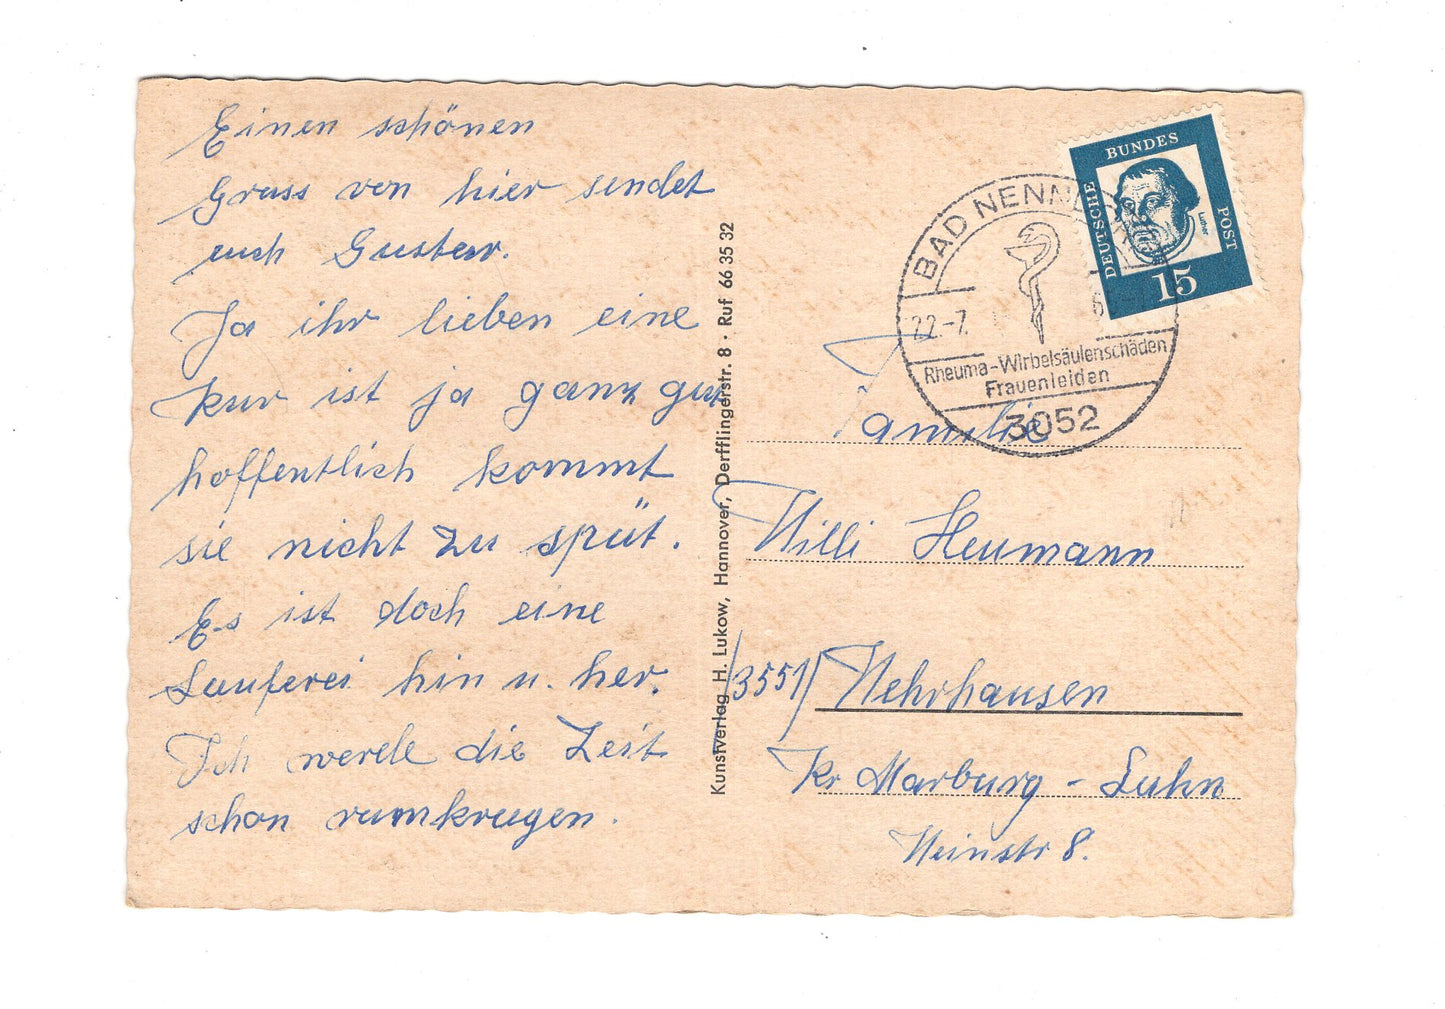 Einen schönen
Gruss von hier sendet
euch Gustav.
Ja ihr lieben eine
Kur ist ja ganz gut
hoffentlich kommt
sie nicht zu spät.
Es ist doch eine
Lauferei hin u. her.
Ich werde die Zeit
schon rumkriegen.
Kunstverlag H. Lukow, Hannover, Derfflingerstr. 8 · Ruf 66 35 32
BAD NENN
22.-7.
Rheuma-Wirbelsäulenschäden
Frauenleiden
3052
DEUTSCHE BUNDES POST
Luther
15
Familie
Willi Heumann
/3551/ Wehrhausen
Kr Marburg - Lahn
Weinstr 8.